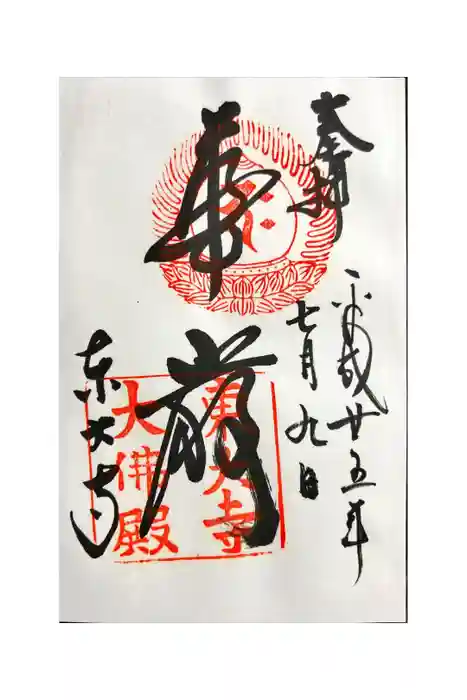 奉拝
平成廿五年
七月九日
華厳
東大寺
東大寺
大佛殿